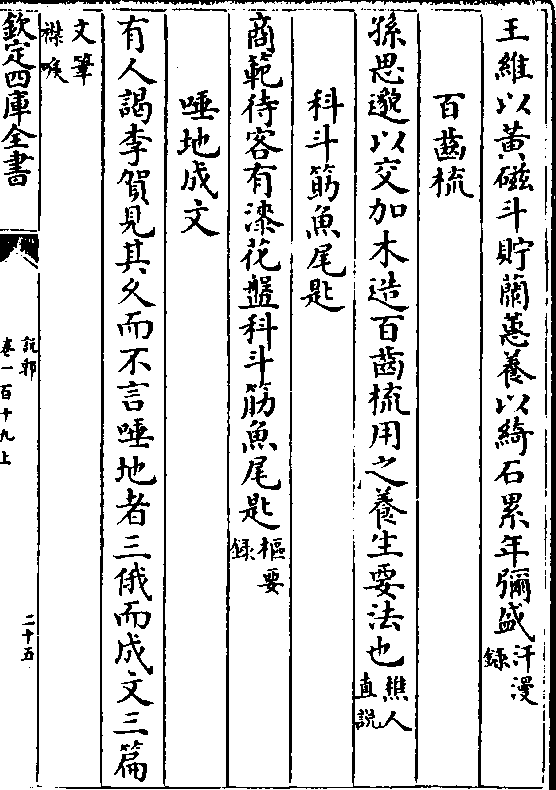 王維以黃磁斗貯蘭蕙養以綺石累年彌盛汗漫錄
百齒梳
孫思邈以交加木造百齒梳用之養生要法也樵人直說
科斗筯魚尾匙
商範待客有漆花盤科斗筯魚尾匙樞要錄
唾地成文
有人謁李賀見其久而不言唾地者三俄而成文三篇
文筆襟喉
欽定四庫全書
說郛
卷一百十九上
二十五